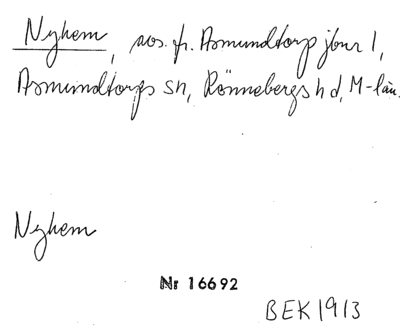 Nyhem, avs. fr. Asmundtorp jbnr 1,
Asmundtorps sn, Rönnebergs hd, M-län.
Nyhem
Nr 16692
BEK 1913